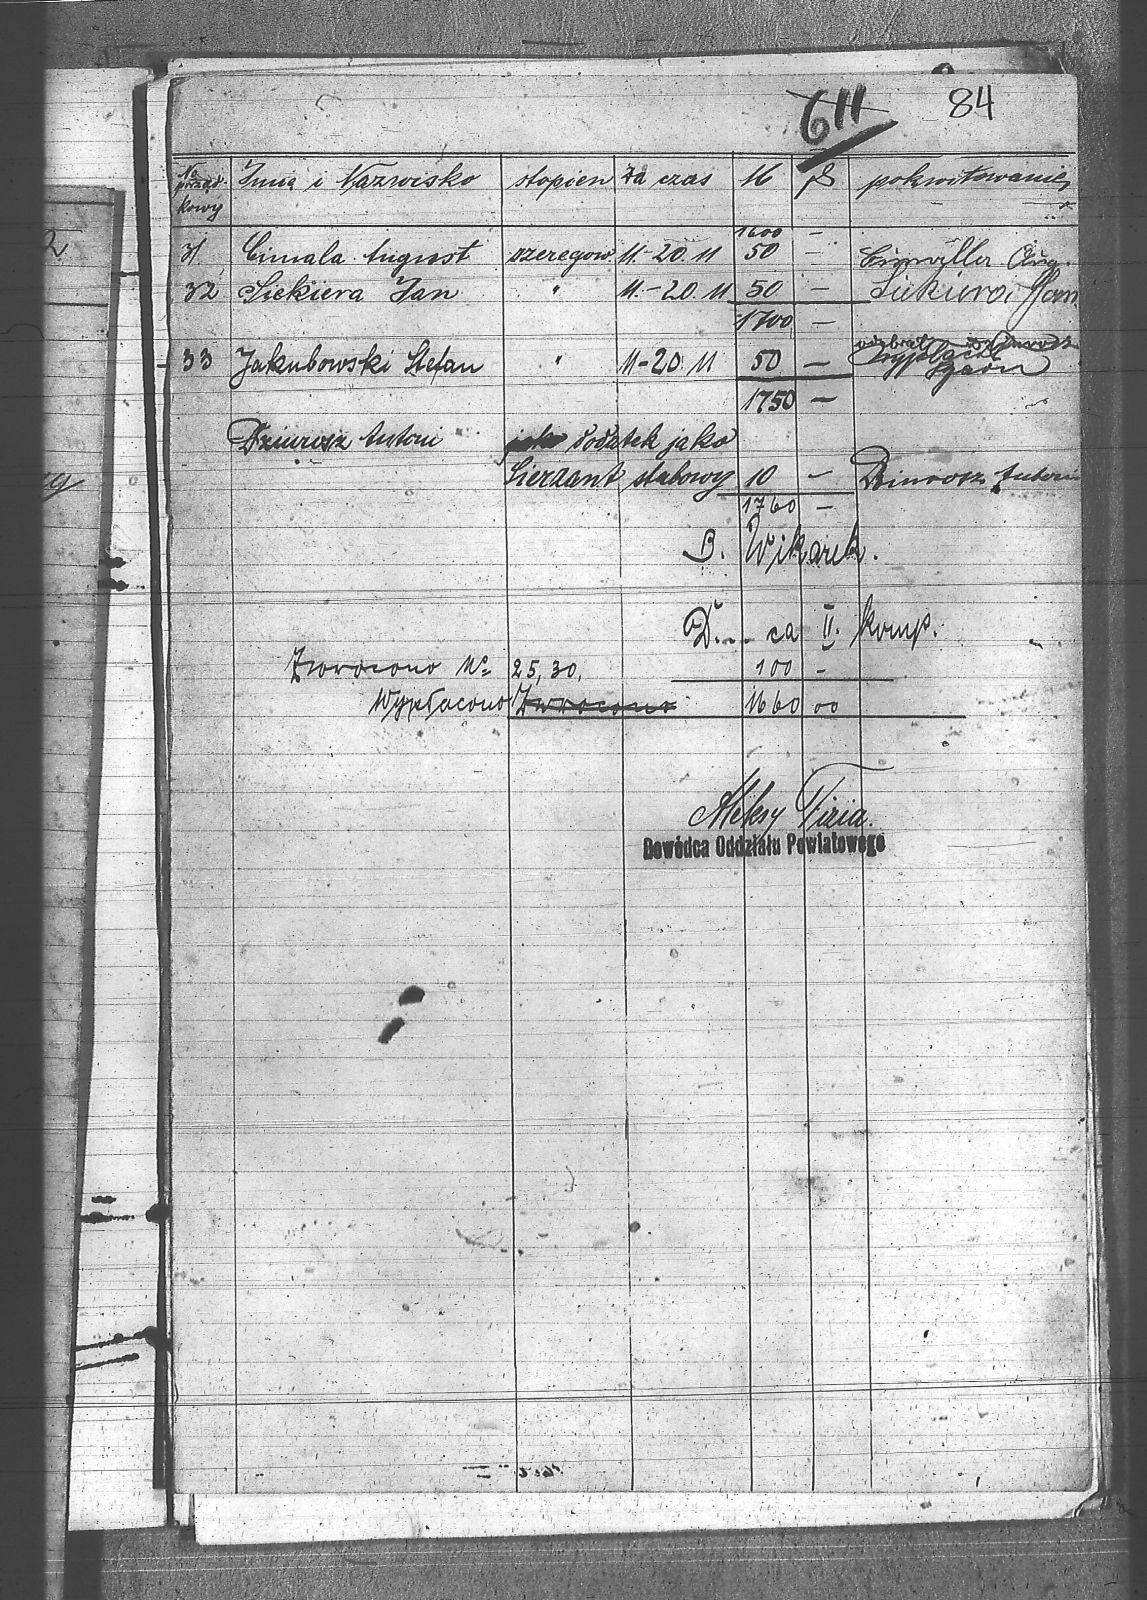 611 84
No porząd-kowy Imię i Nazwisko stopień za czas M ₰ pokwitowanie
1600 —
31 Cimala August szeregow 11.-20.11 50 —
32 Siekiera Jan " 11.-20.11 50 — Siekiera Jan
1700 —
odebrał
33 Jakubowski Stefan " 11-20 11 50 —
1750 —
Dziurosz Antoni dodatek jako
Sierzant stabowy 10 — Antoni
1760 —
B. Wikarek.
D... ca II. komp.
Zwrocono No 25, 30, 100 —
Wypłacono Zwrocono 1660 00
Aleksy Firia.
Dowódca Oddziału Powiatowego